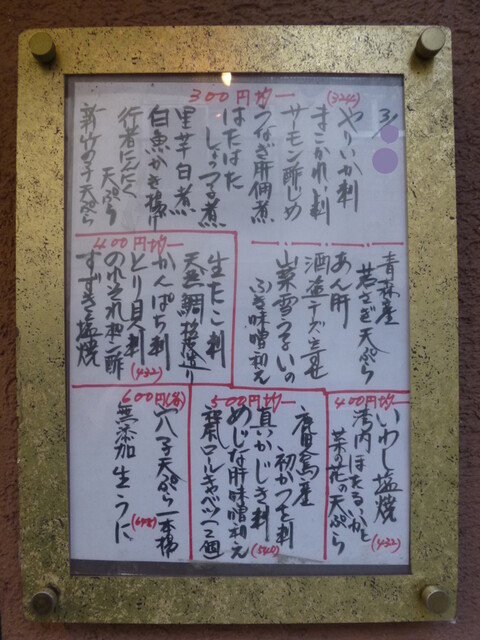 300円均一
(324)
3/
やりいか刺
まこかれい刺
サモン酢じめ
うなぎ肝佃煮
はたはた
しょっつる煮
里芋白煮
白魚かき揚げ
行者にんにく
天ぷら
新竹の子天ぷら
青森産
若さぎ天ぷら
あん肝
山菜雪つるいの
ふき味噌和え
400円均一
生たこ刺
かんぱち刺
とり貝刺
のれそれポン酢
すずき塩焼
(432)
400円均一
いわし塩焼
湾内ほたるいかと
菜の花の天ぷら
(432)
500円均一
鹿児島産
初かつを刺
真かじき刺
めじな肝味噌和え
ロールキャベツ(二個
(540)
600円(各)
穴子天ぷら一本揚
無添加生うに
(648)